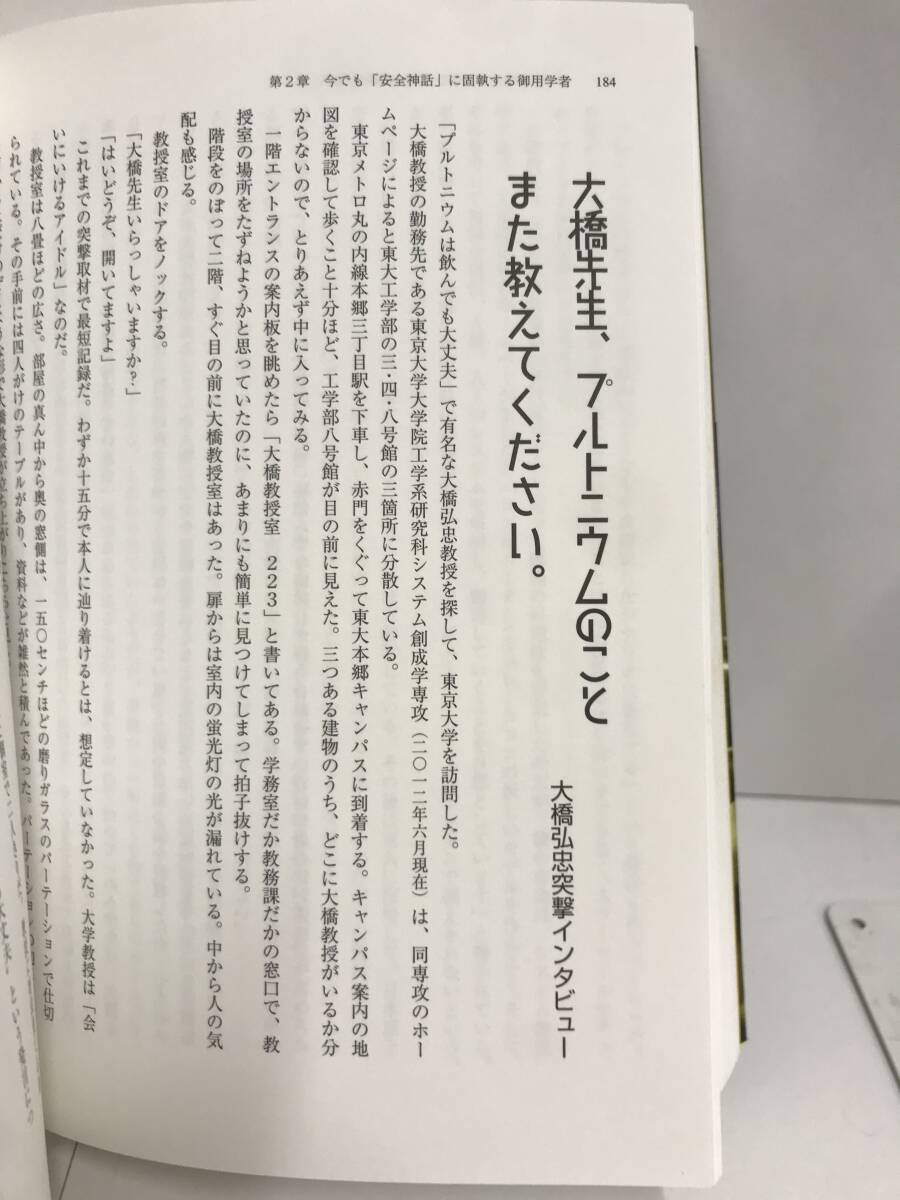 第2章　今でも「安全神話」に固執する御用学者　184
大橋先生、プルトニウムのこと
また教えてください。
大橋弘忠突撃インタビュー
「プルトニウムは飲んでも大丈夫」で有名な大橋弘忠教授を探して、東京大学を訪問した。
大橋教授の勤務先である東京大学大学院工学系研究科システム創成学専攻（二〇一二年六月現在）は、同専攻のホー
ムページによると東大工学部の三・四・八号館の三箇所に分散している。
東京メトロ丸の内線本郷三丁目駅を下車し、赤門をくぐって東大本郷キャンパスに到着する。キャンパス案内の地
図を確認して歩くこと十分ほど、工学部八号館が目の前に見えた。三つある建物のうち、どこに大橋教授がいるか分
からないので、とりあえず中に入ってみる。
一階エントランスの案内板を眺めたら「大橋教授室　223」と書いてある。学務室だか教務課だかの窓口で、教
授室の場所をたずねようかと思っていたのに、あまりにも簡単に見つけてしまって拍子抜けする。
階段をのぼって二階、すぐ目の前に大橋教授室はあった。扉からは室内の蛍光灯の光が漏れている。中から人の気
配も感じる。
教授室のドアをノックする。
「大橋先生いらっしゃいますか？」
「はいどうぞ、開いてますよ」
これまでの突撃取材で最短記録だ。わずか十五分で本人に辿り着けるとは、想定していなかった。大学教授は「会
いにいけるアイドル」なのだ。
教授室は八畳ほどの広さ。部屋の真ん中から奥の窓側は、一五〇センチほどの磨りガラスのパーテーションで仕切
られている。その手前には四人がけのテーブルがあり、資料などが雑然と積んであった。パーテーションの